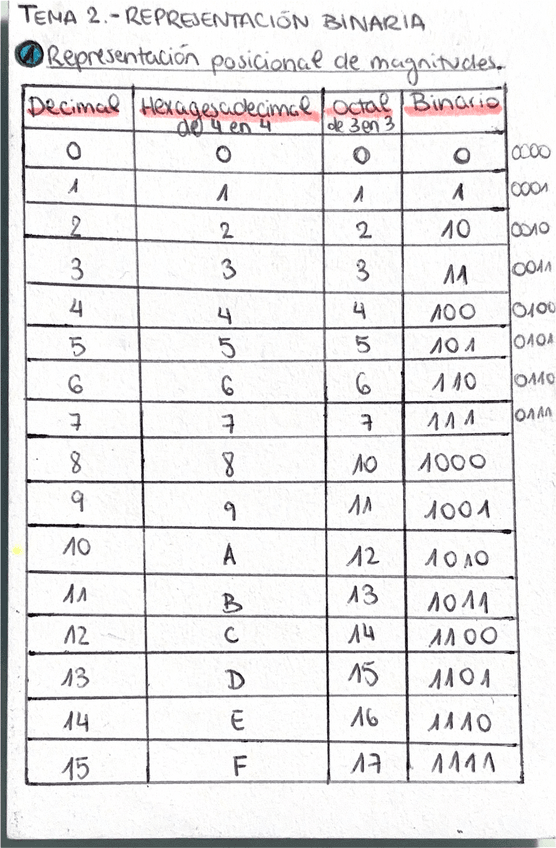 TEMA 2.-REPRESENTACIÓN BINARIA
1 Representación posicional de magnitudes.
Decimal Hexagesadecimal de 4 en 4 Octal de 3 en 3 Binario
0 0 0 0 0000
1 1 1 1 0001
2 2 2 10 0010
3 3 3 11 0011
4 4 4 100 0100
5 5 5 101 0101
6 6 6 110 0110
7 7 7 111 0111
8 8 10 1000
9 9 11 1001
10 A 12 1010
11 B 13 1011
12 C 14 1100
13 D 15 1101
14 E 16 1110
15 F 17 1111